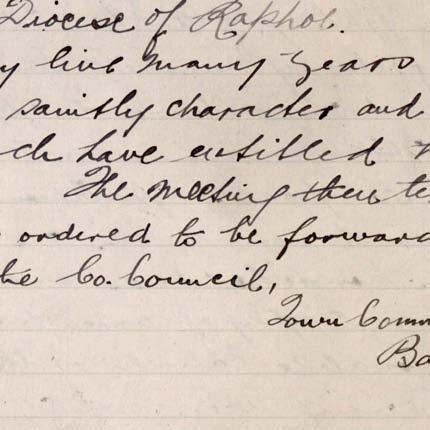 Diocese of Raphoe.
y live many years
saintly character and
ch have entitled
The meeting then te
ordered to be forward
the Co. Council,
Town Comm
Ba